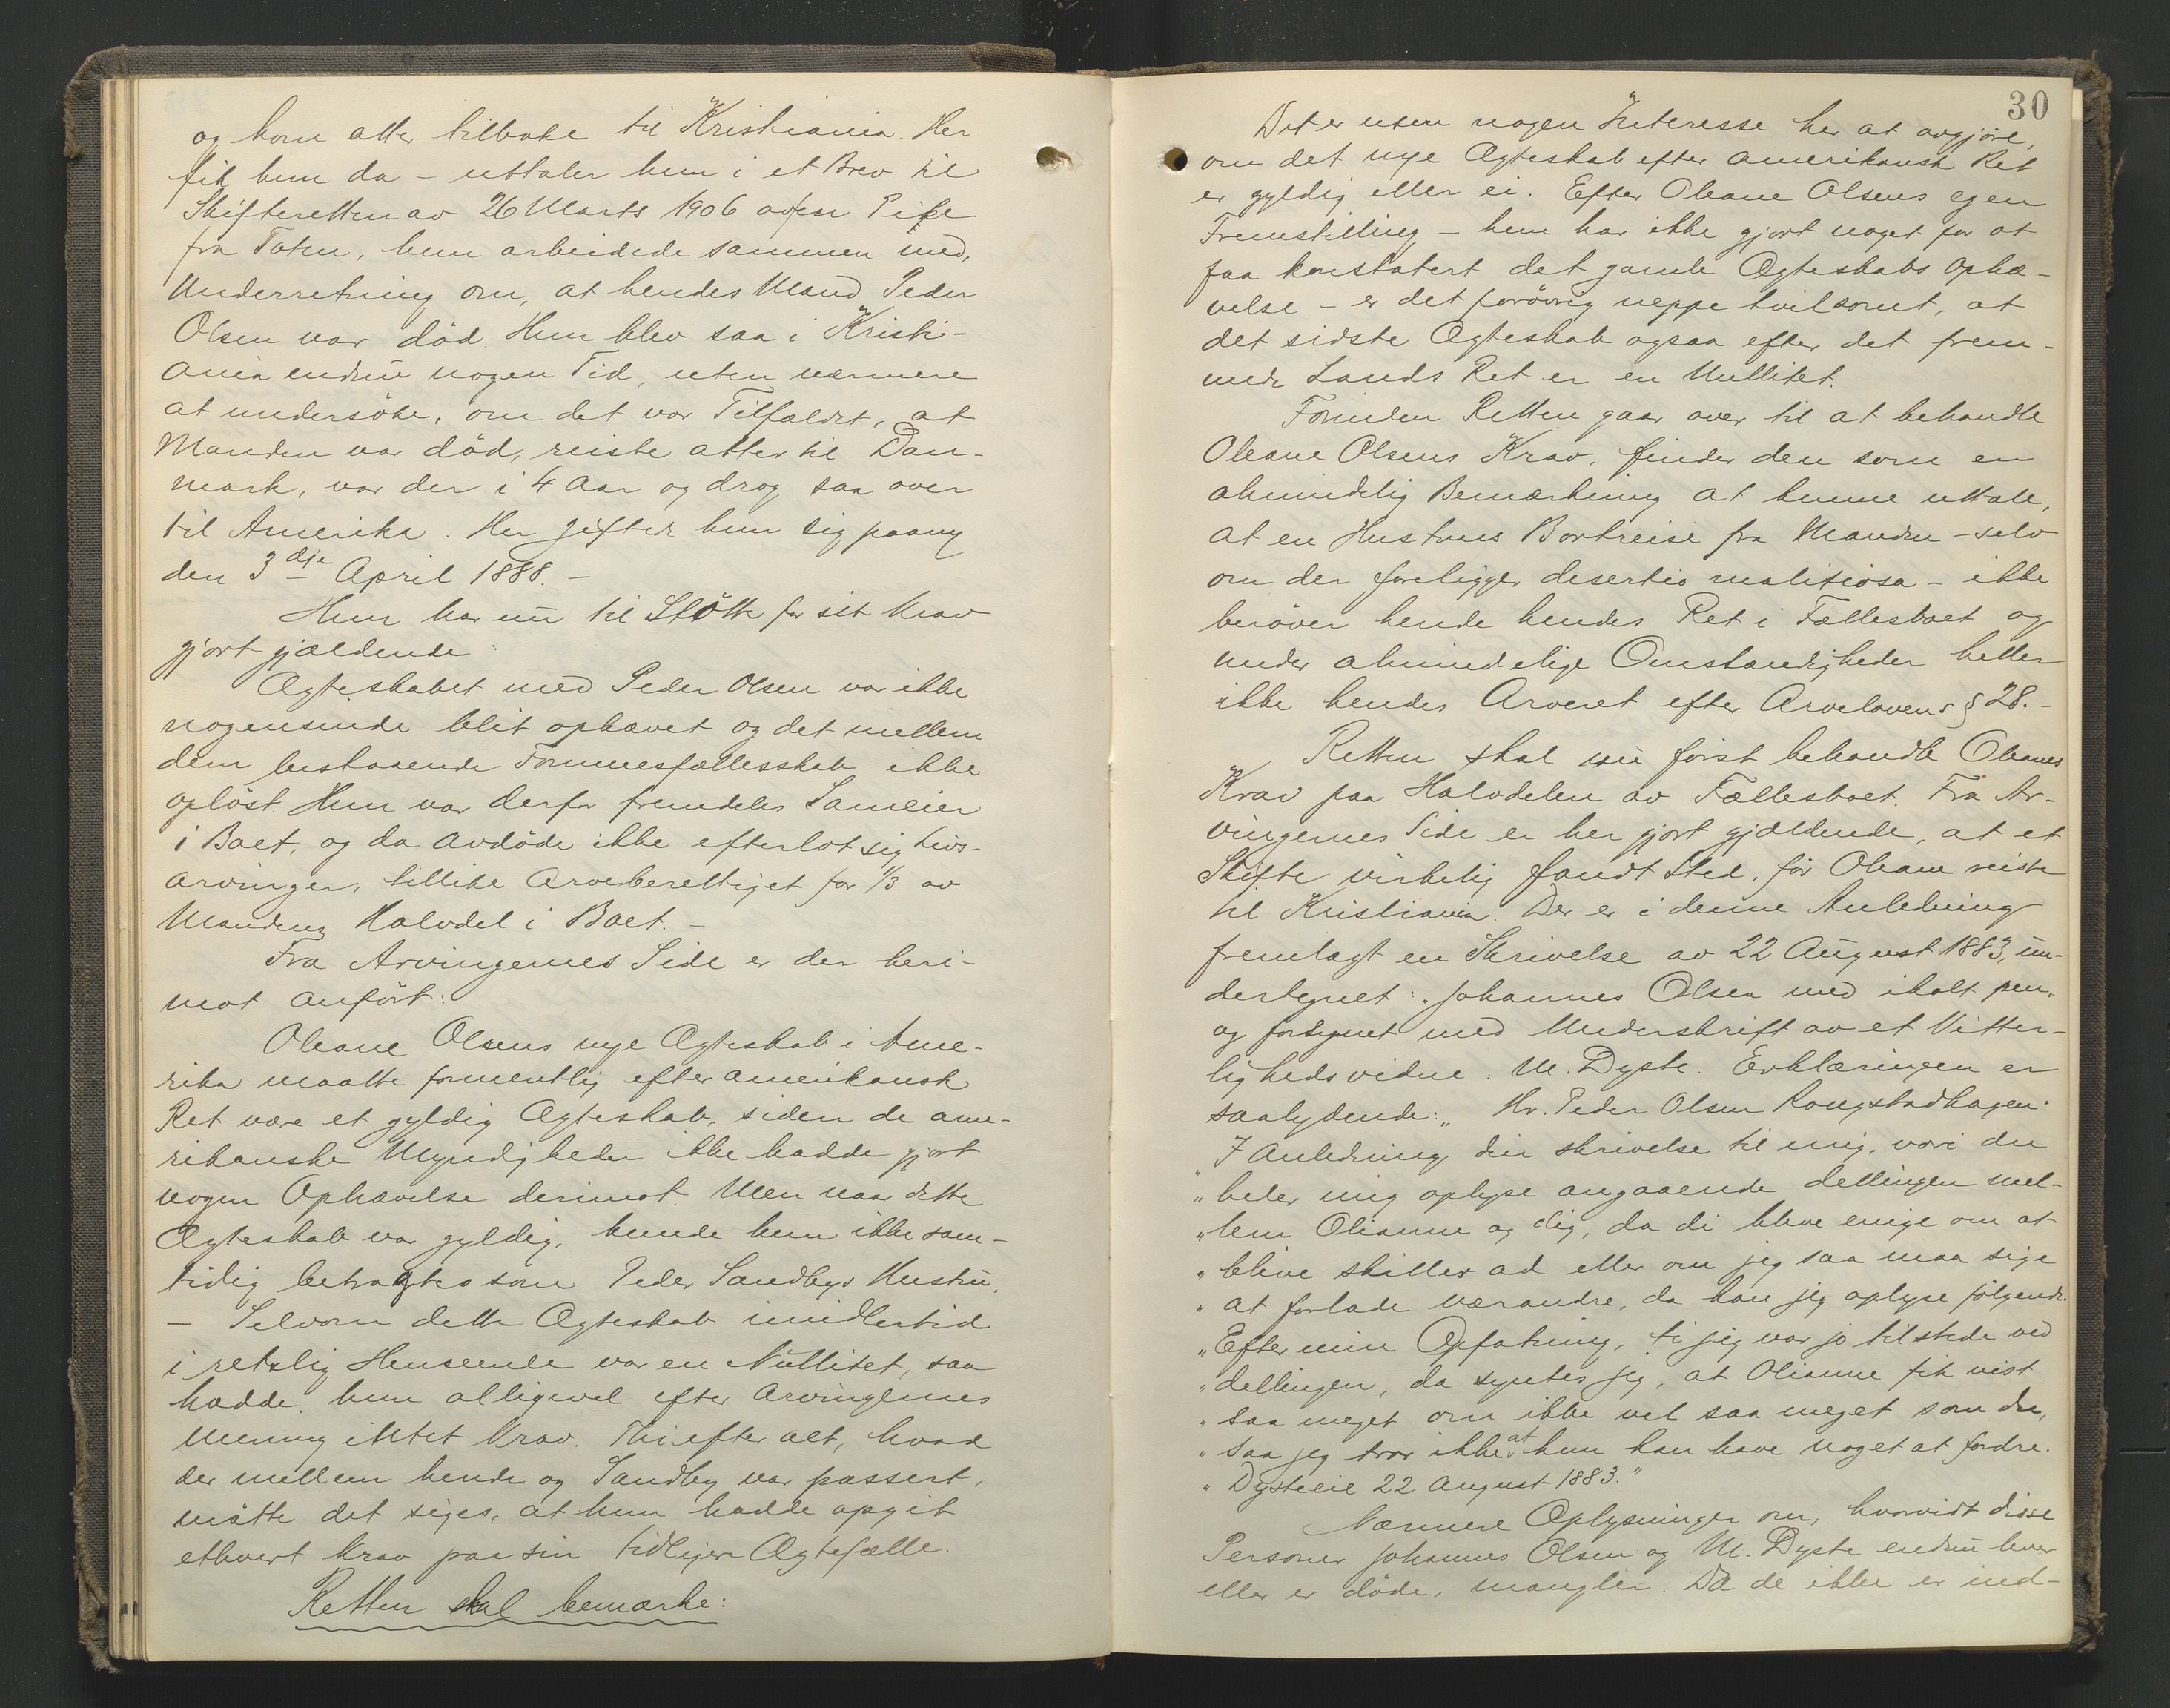 og kom atter tilbake til Kristiania. Her
fik hun da – uttaler hun i et Brev til
Skifteretten av 26 Marts 1906 av en Pike
fra Toten, hun arbeidede sammen med,
Underretning om, at hendes Mand Peder
Olsen var död. Hun blev saa i Kristi-
ania endnu nogen Tid, uten nærmere
at undersöke, om det var Tilfældet, at
Manden var död, reiste atter til Dan-
mark, var der i 4 Aar og drog saa over
til Amerika. Her giftede hun sig paany
den 3dje April 1888. –
Hun har nu til Stötte for sit Krav
gjort gjældende:
Ægteskabet med Peder Olsen var ikke
nogensinde blit ophævet og det mellem
dem bestaaende Formuesfællesskab ikke
oplöst. Hun var derfor fremdeles Sameier
i Boet, og da Avdöde ikke efterlot sig Livs-
arvinger, tillike Arveberettiget for 1/3 av
Mandens Halvdel i Boet. –
Fra Arvingernes Side er der heri-
mot anfört:
Oleane Olsens nye Ægteskab i Ame-
rika maatte formentlig efter amerikansk
Ret være et gyldig Ægteskab, siden de ame-
rikanske Myndigheder ikke hadde gjort
nogen Ophævelse derimot. Men naar dette
Ægteskab var gyldig, kunde hun ikke sam-
tidig betragtes som Peder Sandbys Hustru.
– Selvom dette Ægteskab imidlertid
i retslig Henseende var en Nullitet, saa
hadde hun alligevel efter Arvingernes
Mening intet Krav. Thi efter alt, hvad
der mellem hende og Sandby var passert,
måtte det siges, at hun hadde opgit
ethvert Krav paa sin tidligere Ægtefælle.
Retten skal bemærke:
30
Det er uten nogen Interesse her at avgjöre,
om det nye Ægteskab efter amerikansk Ret
er gyldig eller ei. Efter Oleane Olsens egen
Fremstilling – hun har ikke gjort noget for at
faa konstatert det gamle Ægteskabs Ophæ-
velse – er det forövrig neppe tvilsomt, at
det sidste Ægteskab ogsaa efter det frem-
mede Lands Ret er en Nullitet.
Forinden Retten gaar over til at behandle
Oleane Olsens Krav, finder den som en
almindelig Bemærkning at kunne uttale,
at en Hustrues Bortreise fra Manden – selv
om der foreligger desertio malitiosa – ikke
beröver hende hendes Ret i Fællesboet og
under almindelige Omstændigheder heller
ikke hendes Arveret efter Arvelovens § 28. –
Retten skal nu först behandle Oleanes
Krav paa Halvdelen av Fællesboet. Fra Ar-
vingernes Side er her gjort gjældende, at et
Skifte virkelig fandt Sted, för Oleane reiste
til Kristiania. Der er i denne Anledning
fremlagt en Skrivelse av 22 August 1883, un-
dertegnet: Johannes Olsen med iholt pen,
og forsynet med Underskrift av et Vitter-
lighedsvidne. M. Dyste. Erklæringen er
saalydende: „Hr. Peder Olsen Rongstadhagen
„I Anledning din skrivelse til mig, vori du
„beder mig oplyse angaaende dellingen mel-
„lem Olianne og dig, da di bleve enige om at
„blive skilles ad eller om jeg saa maa sige
„at forlade værandre, da kan jeg oplyse fölgende.
„Efter min Opfatning, ti jeg var jo tilstede ved
„dellingen, da syntes jeg, at Olianne fik vist
„saa meget om ikke vel saa meget som du,
„saa jeg tror ikke at hun kan have noget at fordre.
„Dysteeie 22 August 1883.“
Nærmere Oplysninger om, hvorvidt disse
Personer Johannes Olsen og M. Dyste endnu lever
eller er döde, mangler. Da de ikke er ind-